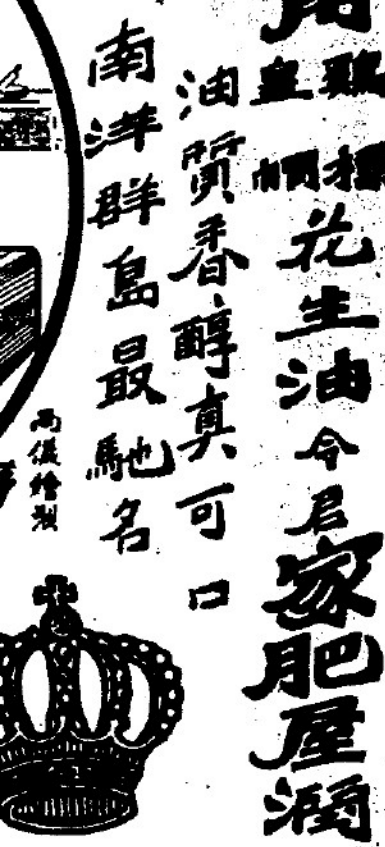 用
皇帽
花生油令君家肥屋潤
油質香醇真可口
南洋群島最馳名
兩儀繪製